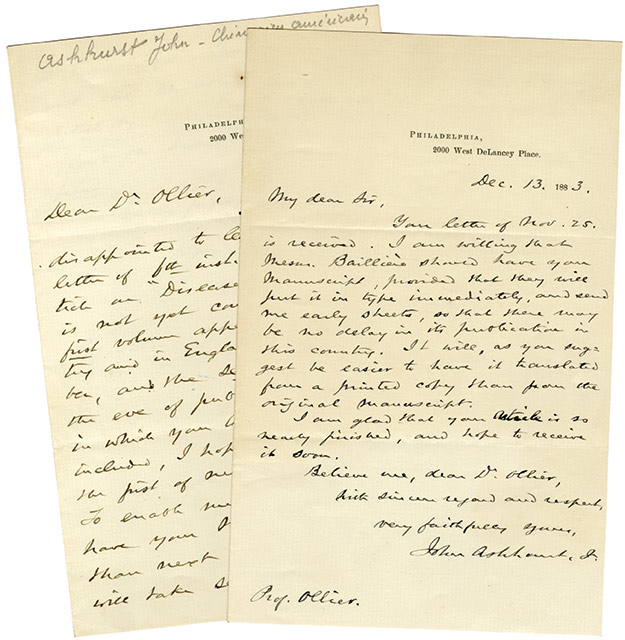 Ashhurst John - Chirurgien américain
PHILADELPH
2000 We
Dear Dr Ollier,
disappointed to le
letter of
on "Disease
is not yet con
first volume appe
try and in Engla
ber, and the se
the eve of pub
in which you
included, I hop
the first of
To enable me
have your
than next
will take se
PHILADELPHIA,
2000 West DeLancey Place.
Dec. 13. 1883.
My dear Sir,
Your letter of Nov. 25.
is received. I am willing that
Messrs. Baillière should have your
Manuscript, provided that they will
put it in type immediately, and send
me early sheets, so that there may
be no delay in its publication in
this country. It will, as you sug-
gest be easier to have it translated
from a printed copy than from the
original manuscript.
I am glad that your article is so
nearly finished, and hope to receive
it soon.
Believe me, dear Dr. Ollier,
with sincere regard and respect,
very faithfully yours,
John Ashhurst, Jr.
Prof. Ollier.